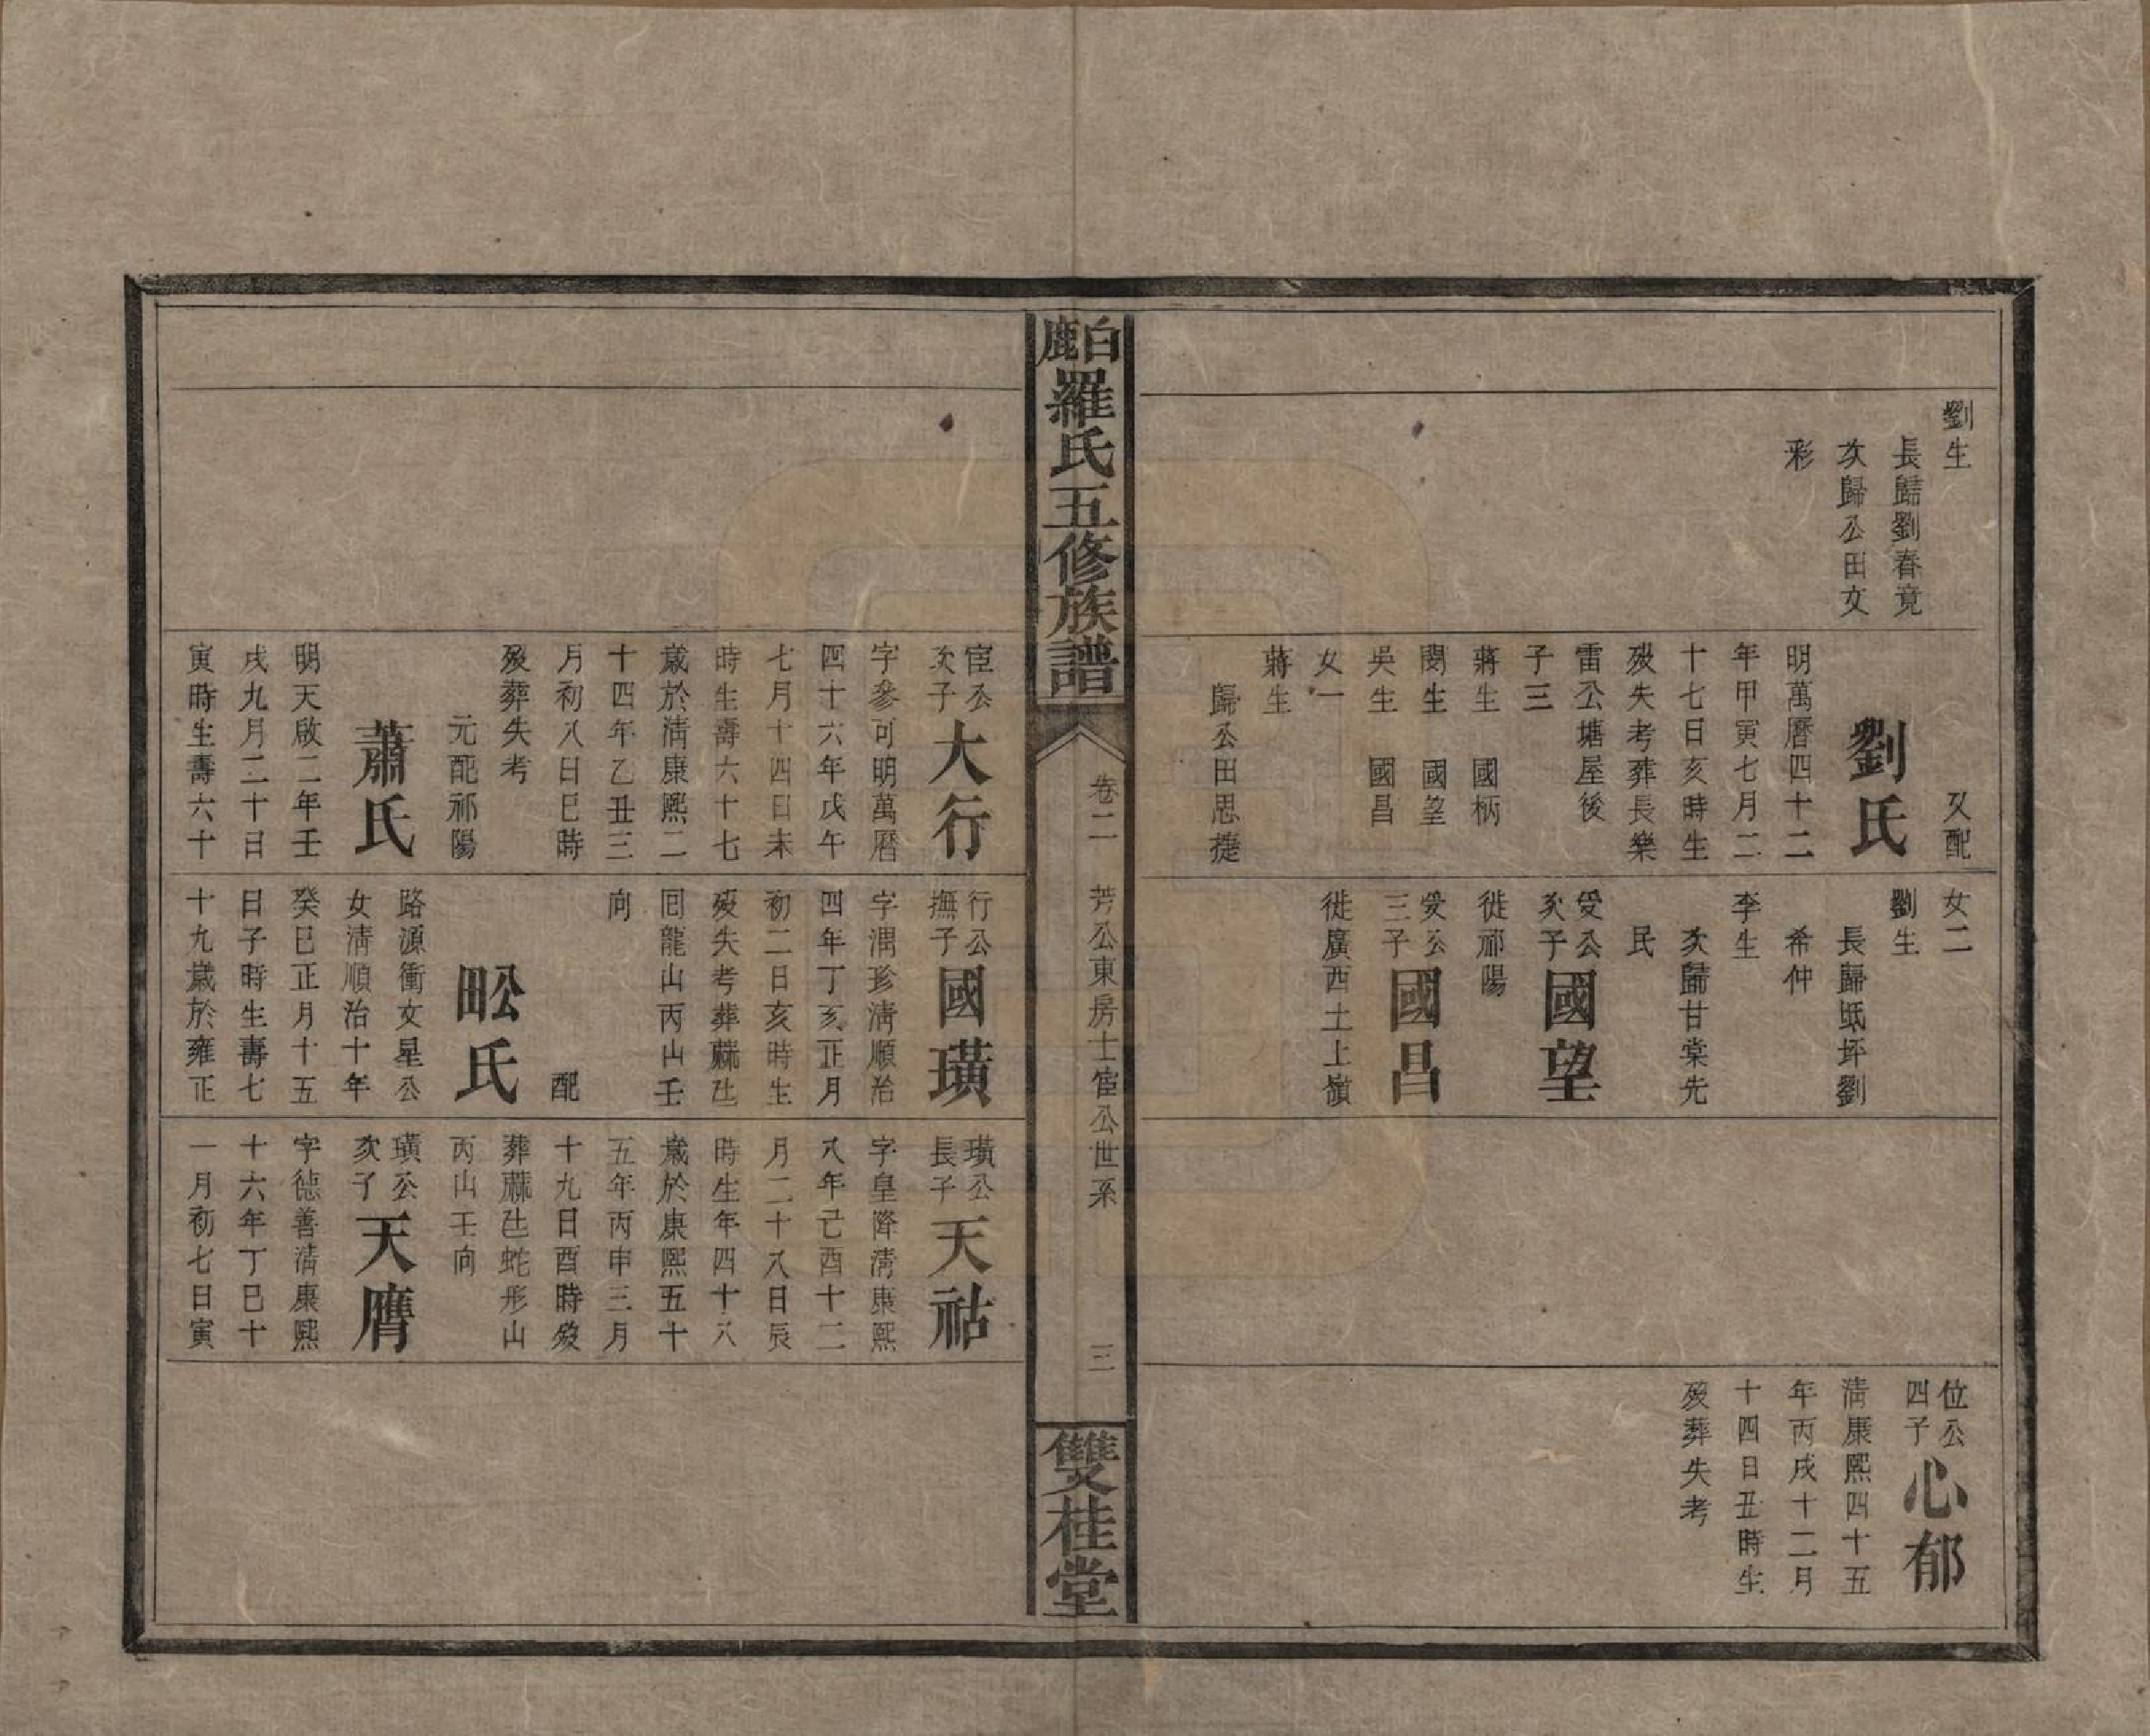 劉生
長歸劉春竟
次歸公田文
彩
又配
劉氏
明萬曆四十二
年甲寅七月二
十七日亥時生
歿失考葬長樂
雷公塘屋後
子三
蔣生 國柄
閔生 國望
吳生 國昌
女一
蔣生
歸公田思捷
女二
劉生
長歸坻坪劉
希仲
李生
次歸甘棠先
民
受公
次子
國望
徙祁陽
受公
三子
國昌
徙廣西土上嶺
位公
四子
心郁
清康熙四十五
年丙戌十二月
十四日丑時生
歿葬失考
白鹿
羅氏五修族譜
卷二
芳公東房士宦公世系
三
雙桂堂
宦公
次子
大行
字參可明萬曆
四十六年戊午
七月十四日未
時生壽六十七
歲於清康熙二
十四年乙丑三
月初八日巳時
歿葬失考
元配祁陽
蕭氏
明天啟二年壬
戌九月二十日
寅時生壽六十
行公
撫子
國璜
字潤珍清順治
四年丁亥正月
初二日亥時生
歿失考葬蔴𡉏
囘龍山丙山壬
向
配
㽘氏
路源衝文星公
女清順治十年
癸巳正月十五
日子時生壽七
十九歲於雍正
璜公
長子
天祜
字皇降清康熙
八年己酉十二
月二十八日辰
時生年四十八
歲於康熙五十
五年丙申三月
十九日酉時歿
葬蔴𡉏蛇形山
丙山壬向
璜公
次子
天膺
字德善清康熙
十六年丁巳十
一月初七日寅